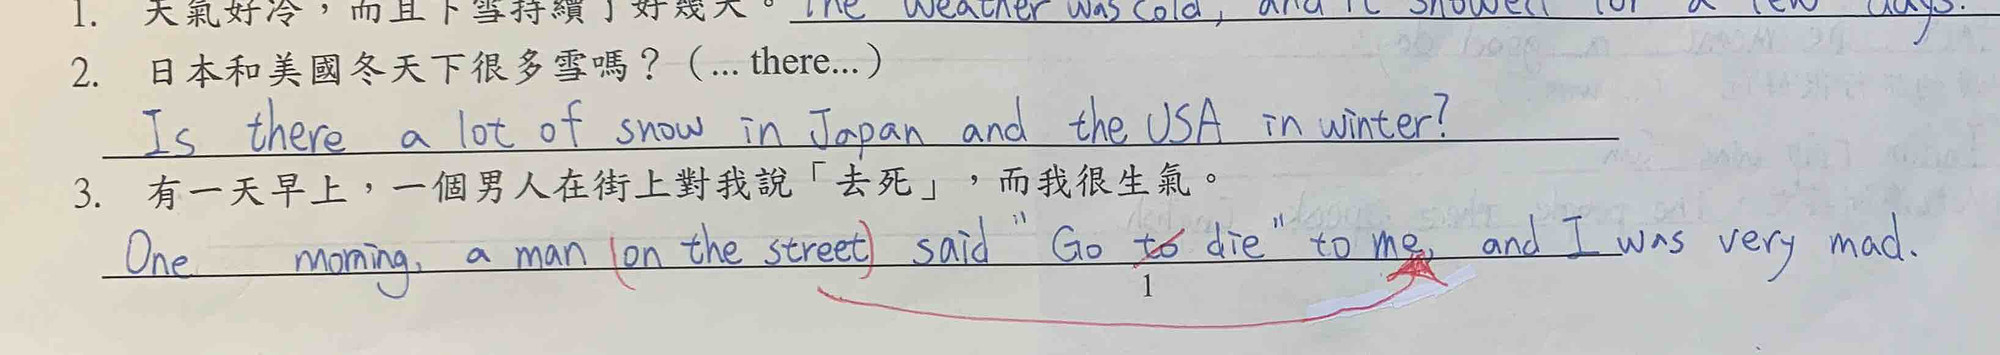 1. 天氣好冷，而且下雪持續了好幾天。The weather was cold, and it snowed for a few days.
2. 日本和美國冬天下很多雪嗎？（... there...）
Is there a lot of snow in Japan and the USA in winter?
3. 有一天早上，一個男人在街上對我說「去死」，而我很生氣。
One morning, a man (on the street) said "Go to die" to me, and I was very mad.
1